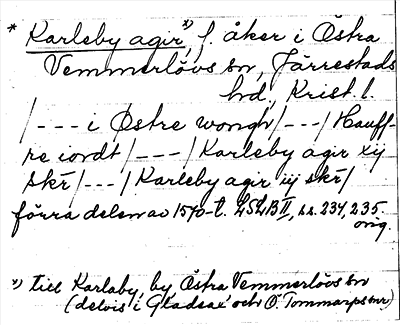 * Karleby agir,ˣ⁾ f. åker i Östra
Vemmerlövs sn, Järrestads
hd, Krist. l.
/---i Östre wongh/---/Hauff-
re iordt/---/Karleby agir xij
skr̄/---/Karleby agir iij skr̄/
förra delen av 1570-t. LSLB II, ss. 234, 235.
orig.
ˣ⁾ till Karlaby by Östra Vemmerlövs sn
(delvis i Gladsax' och Ö. Tommarps snr)